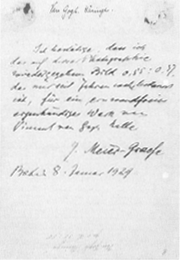 Van Gogh
Ich bestätige, dass ich
das auf dieser Photographie
wiedergegebene Bild 0.55:0.37,
das mir seit Jahren bekannt
ist, für ein einwandfreies
eigenhändiges Werk von
Vincent van Gogh halte
J. Meier-Graefe
Berlin 8. Januar 1929